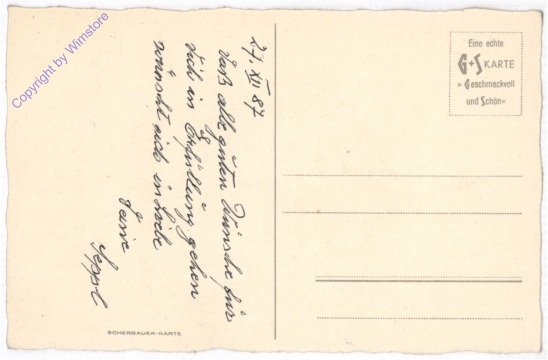 27. XII 87
daß alle guten Wünsche für
dich in Erfüllung gehen
wünscht dich in Liebe
Seppl
Eine echte
G+S KARTE
» Geschmackvoll
und Schön«
SCHERBAUER-KARTE
Copyright by Wimstore